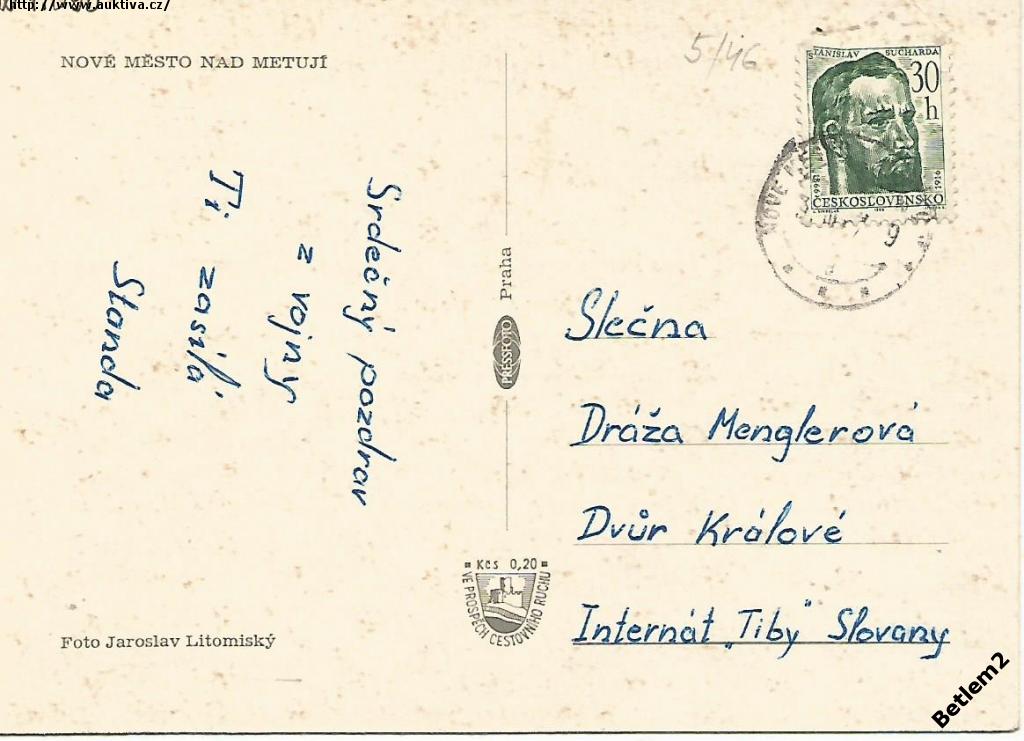 http://www.auktiva.cz/
NOVÉ MĚSTO NAD METUJÍ
5/46
STANISLAV SUCHARDA
30
h
1866
1916
ČESKOSLOVENSKO
NOVÉ MĚSTO
Srdečný pozdrav
z vojny
Ti zasílá
Standa
Praha
PRESSFOTO
Slečna
Dráža Menglerová
Dvůr Králové
Internát „Tiby" Slovany
Kčs 0,20
VE PROSPĚCH CESTOVNÍHO RUCHU
Foto Jaroslav Litomiský
Betlem2